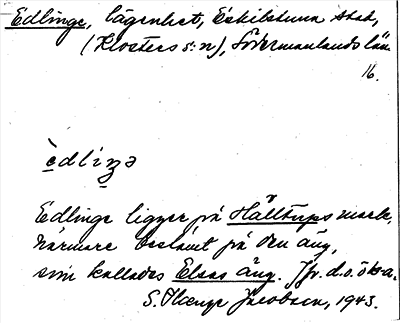 Edlinge, lägenhet, Eskilstuna stad,
(Klosters s:n), Södermanlands län
16.
èdliŋə
Edlinge ligger på Hälltorps mark,
närmare bestämt på den äng,
som kallades Elsas äng. Jfr. d.o.
S. Jacobsen, 1943.